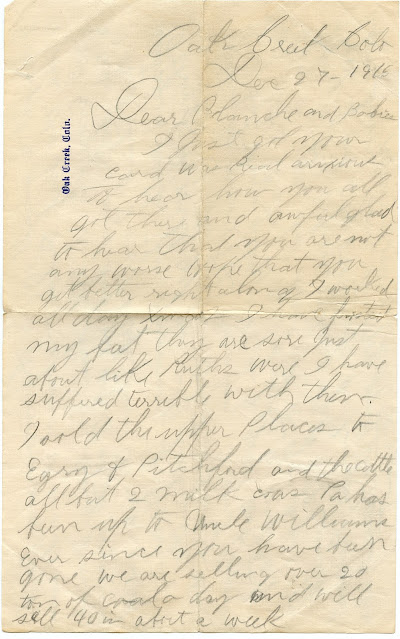 Oak Creek, Colo.
Oak Creek Colo
Dec 27-191
Dear Blanche and Babies
I Just got your
card was Real anxious
to hear how you all
got there and awful glad
to hear that you are not
any worse hope that you
get better right along I worked
all day I have
my feet they are sore Just
about like Ruths were I have
suffered terrible with them.
I sold the upper Places to
& Pitchford and the cattle
all but 2 milk cows Pa has
been up to Uncle Williams
Ever since you have been
gone we are selling over 20
ton of coal a day and will
sell 40 in about a week